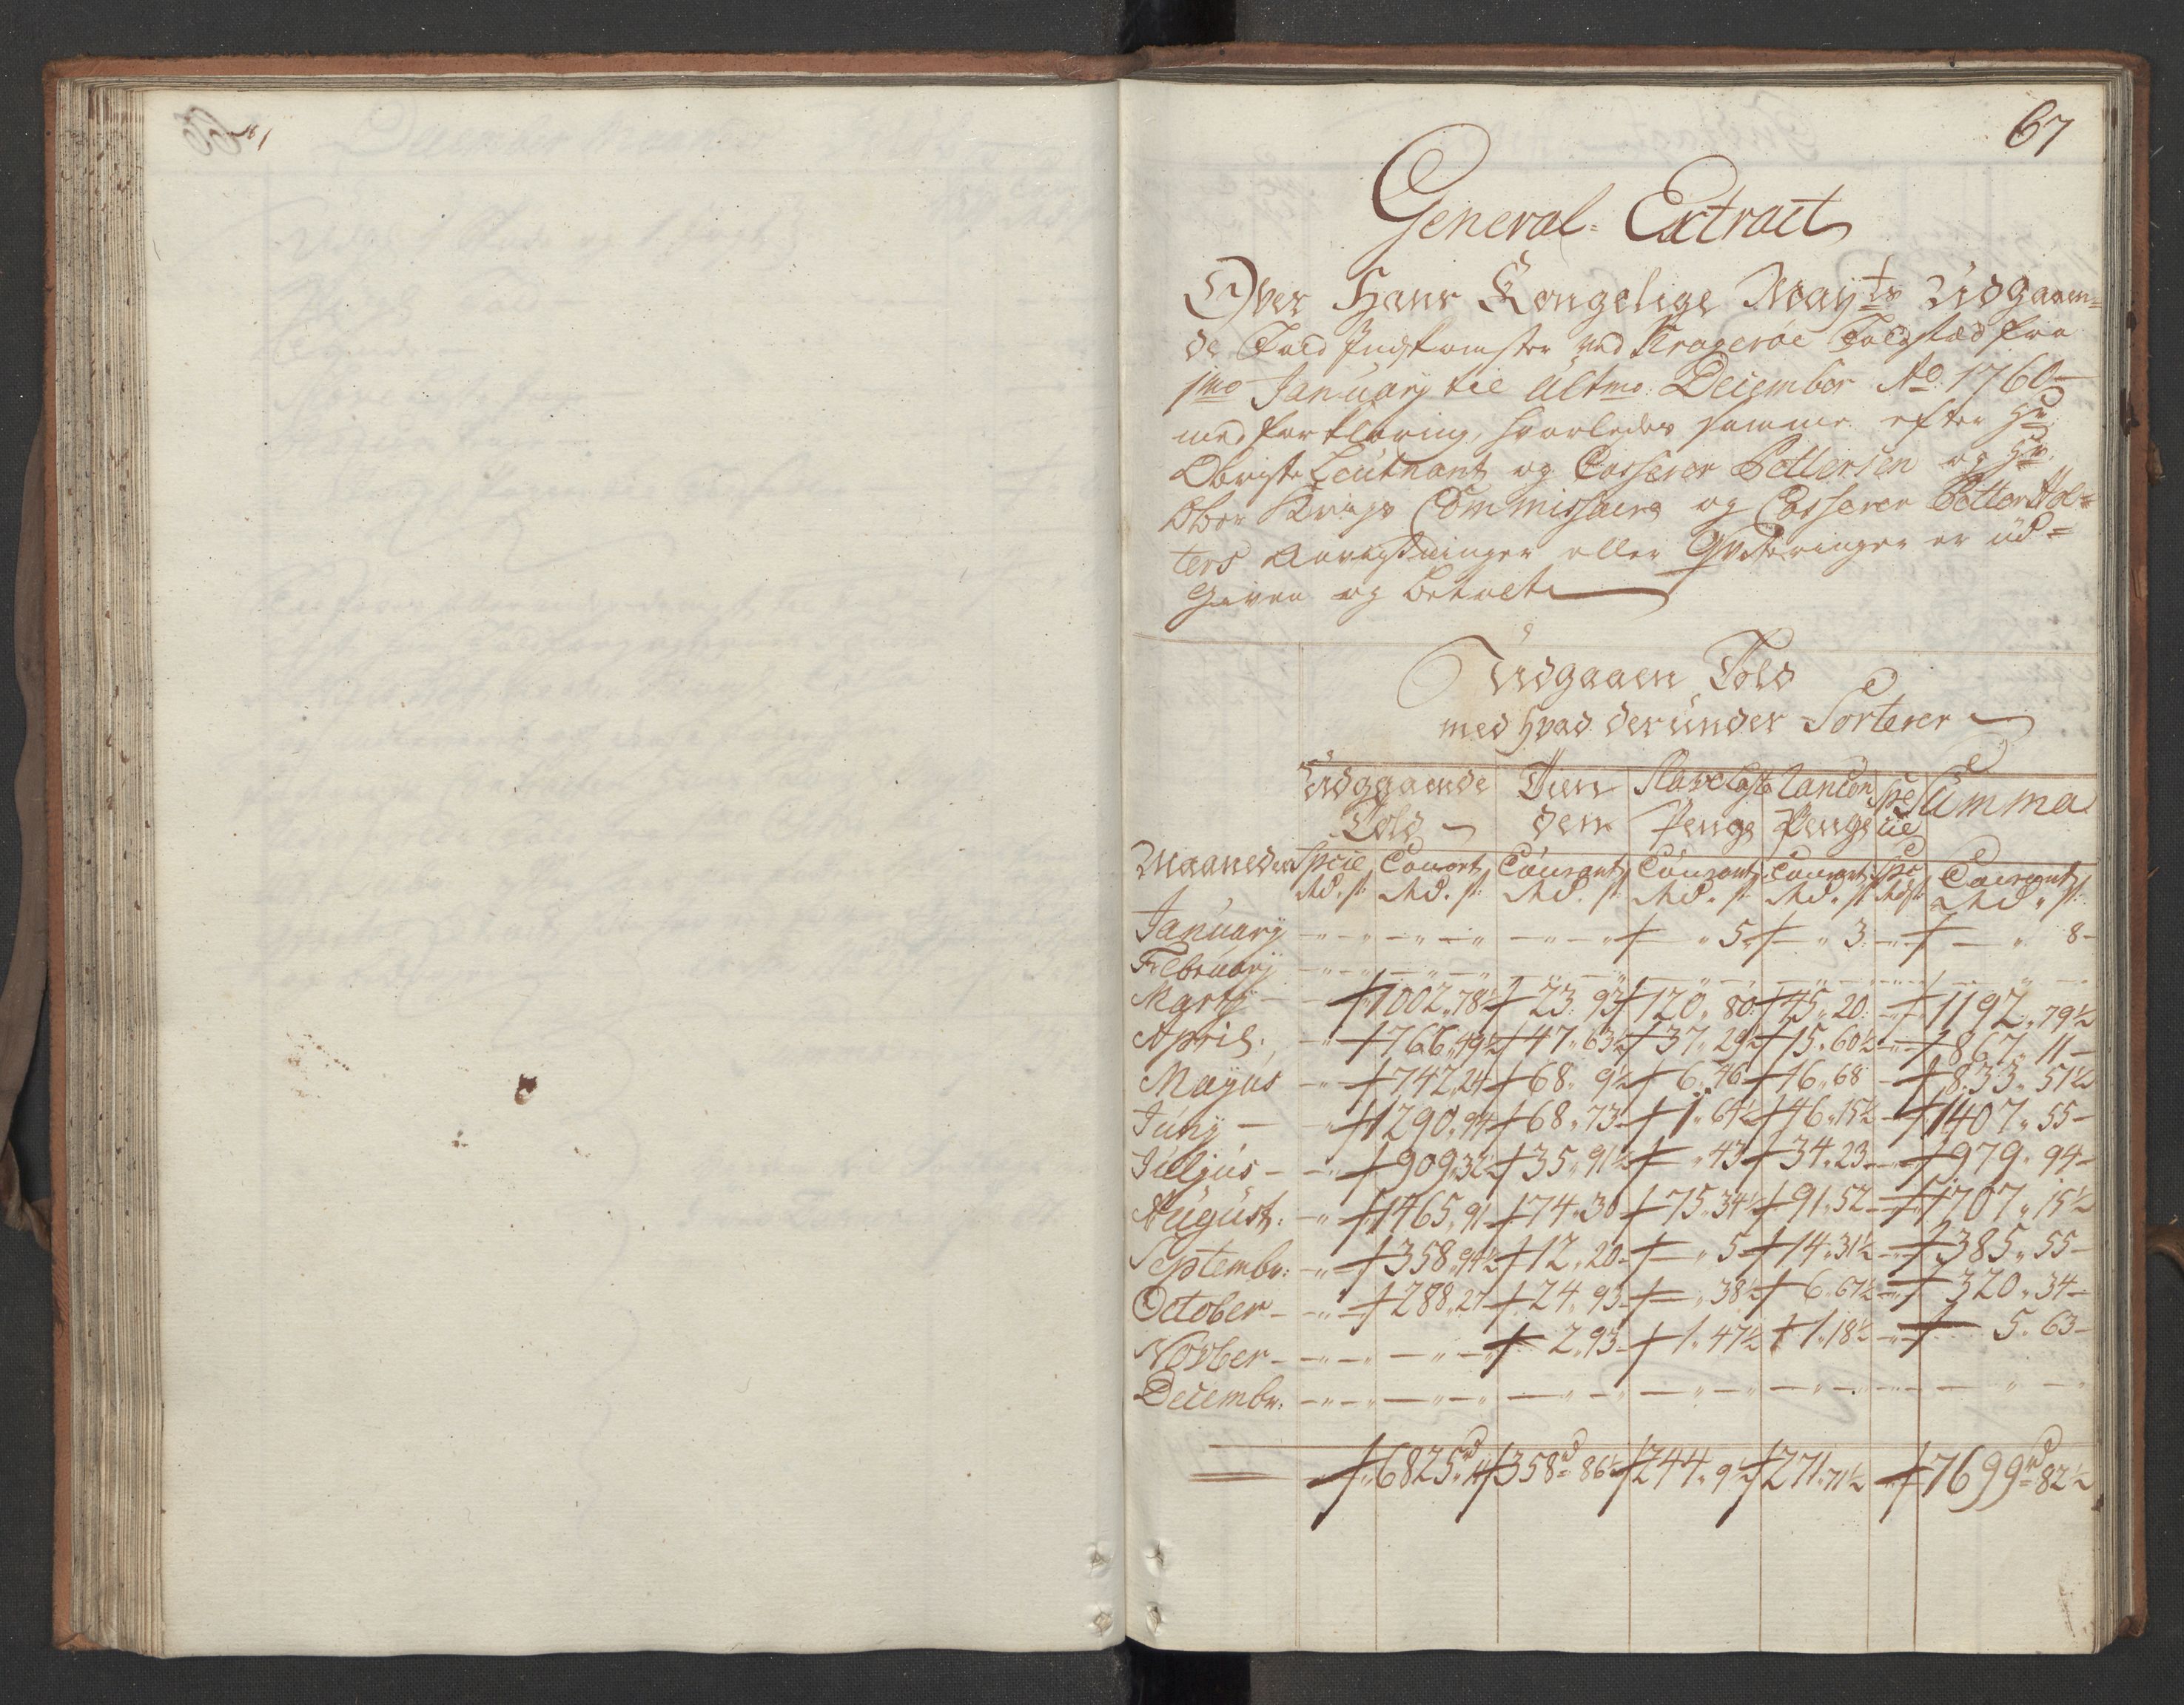 67
General Extract
Over Hans Kongelige Mayts Udgaaen=
de Told Indkomster ved Kragerøe Toldsted fra
1mo January til Ultmo December Ao 1760
med Forklaring, hvorledes samme efter Hr
Obriste Leutnant og Casserer Pettersen og Hr
Ober Krigs Commissaire og Casserer Petter Hol=
ters Anvisninger eller Qvitteringer er ud=
given og betalt
Udgaaen Told
med hvad derunder Sorterer
Udgaaende Told Tien den Slave Casse Penge Rancon Penge Spe cie Summa
Maaneder Spcie Courant Courant Courant Courant Spe Courant
Rd. s. Rd. s. Rd. s. Rd. s. Rd. s. Rd s Rd. s.
January - - - - - - 5 - 3 - - 8
February - - - - - -
Marty - 1002 " 78½ 23 " 93 120 " 80 45 " 20 - 1192 " 79½
April - 766 " 49½ 47 " 63½ 37 " 29½ 15 " 60½ - 867 " 11
Mayus - 742 " 24 68 " 9½ 6 " 46 16 " 68 - 833 " 51½
Juny - 1290 " 94 68 " 73 1 " 64½ 46 " 15½ - 1407 " 55
Julyus - 909 " 32½ 35 " 91½ " 43 34 " 23 - 979 " 94
August - 1465 " 91 74 " 30 75 " 34½ 91 " 52 - 1707 " 15½
Septembr: - 358 " 94½ 12 " 20 " 5 14 " 31½ - 385 " 55
October - 288 " 27 24 " 93 " 38½ 6 " 67½ - 320 " 34
Novber - - 2 " 93 1 " 47½ 1 " 18½ - 5 " 63
Decembr: - - - - - -
6825 rd " 11 358 rd 86½ 244 " 9½ 271 " 71½ 7699 rd 82½